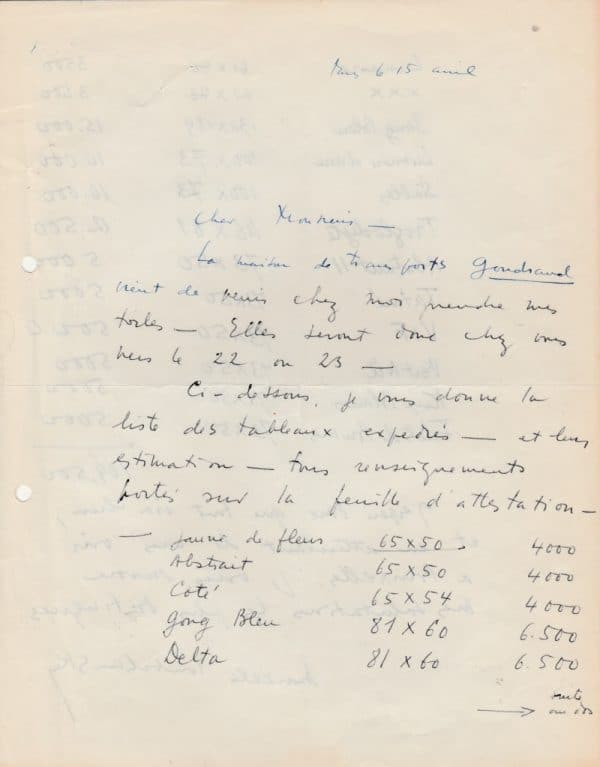 Paris le 15 avril
Cher Monsieur —
La maison de transports Gondrand
vient de venir chez moi prendre mes
toiles — Elles seront donc chez vous
vers le 22 ou 23 —
Ci-dessous, je vous donne la
liste des tableaux expediés — et leur
estimation — tous renseignements
portés sur la feuille d'attestation —
— jaune de fleurs 65 x 50 4000
Abstrait 65 x 50 4000
Coté 65 x 54 4000
Gong Bleu 81 x 60 6.500
Delta 81 x 60 6.500
suite
→ au dos